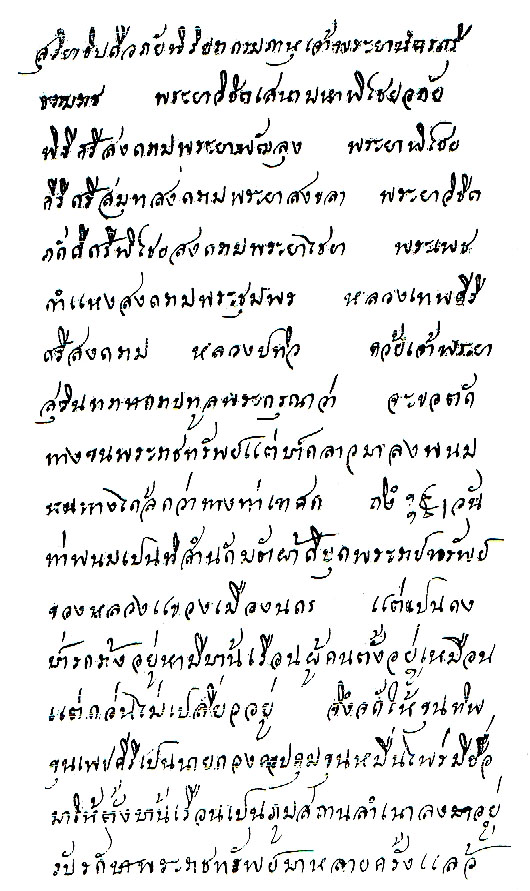 สุริยาธิบดีอภัยพิริยกรมภาหุ เจ้าพระยานครศรี
ธรรมราช พระยาวิชิตเสนามหาพิไชยอภัย
พิรีศรีสงคราม พระยาพัทลุง พระยาพิไชย
คีรีศรีสมุทสงคราม พระยาสงขลา พระยาวิชิต
ภักดีศรีพิไชยสงคราม พระยาไชยา พระเพช
กำแหงสงคราม พระชุมพร หลวงเทพคีรี
ศรีสงคราม หลวงปทิว ด้วยเจ้าพระยา
สุรินทราชกราบทูลพระกรุณาว่า จะขอตัด
ทางขนพระราชทรัพยแต่ปากลาวมาลงพนม
หนทางใกล้กว่าทางท่าเทศก วัน
ท่าพนมเปนที่สำนัก พระราชทรัพย์
ของหลวงแขวงเมืองนคร แต่เปนดง
ป่ารกร้างอยู่หามีบ้านเรือนผู้คนตั้งอยู่เหมือน
แต่กอ่นไม่เปลี่ยวอยู่ จึ่งจดให้ขุนทิพ
ขุนเพชคีรีเปนนายกอง ขุนหมื่นไพร่มีชื่อ
มาให้ตั้งบ้านเรือนเปนภูมสถานลำเนาลงอยู่
รับรักษาพระราชทรัพย์มาหลายครั้งแล้ว